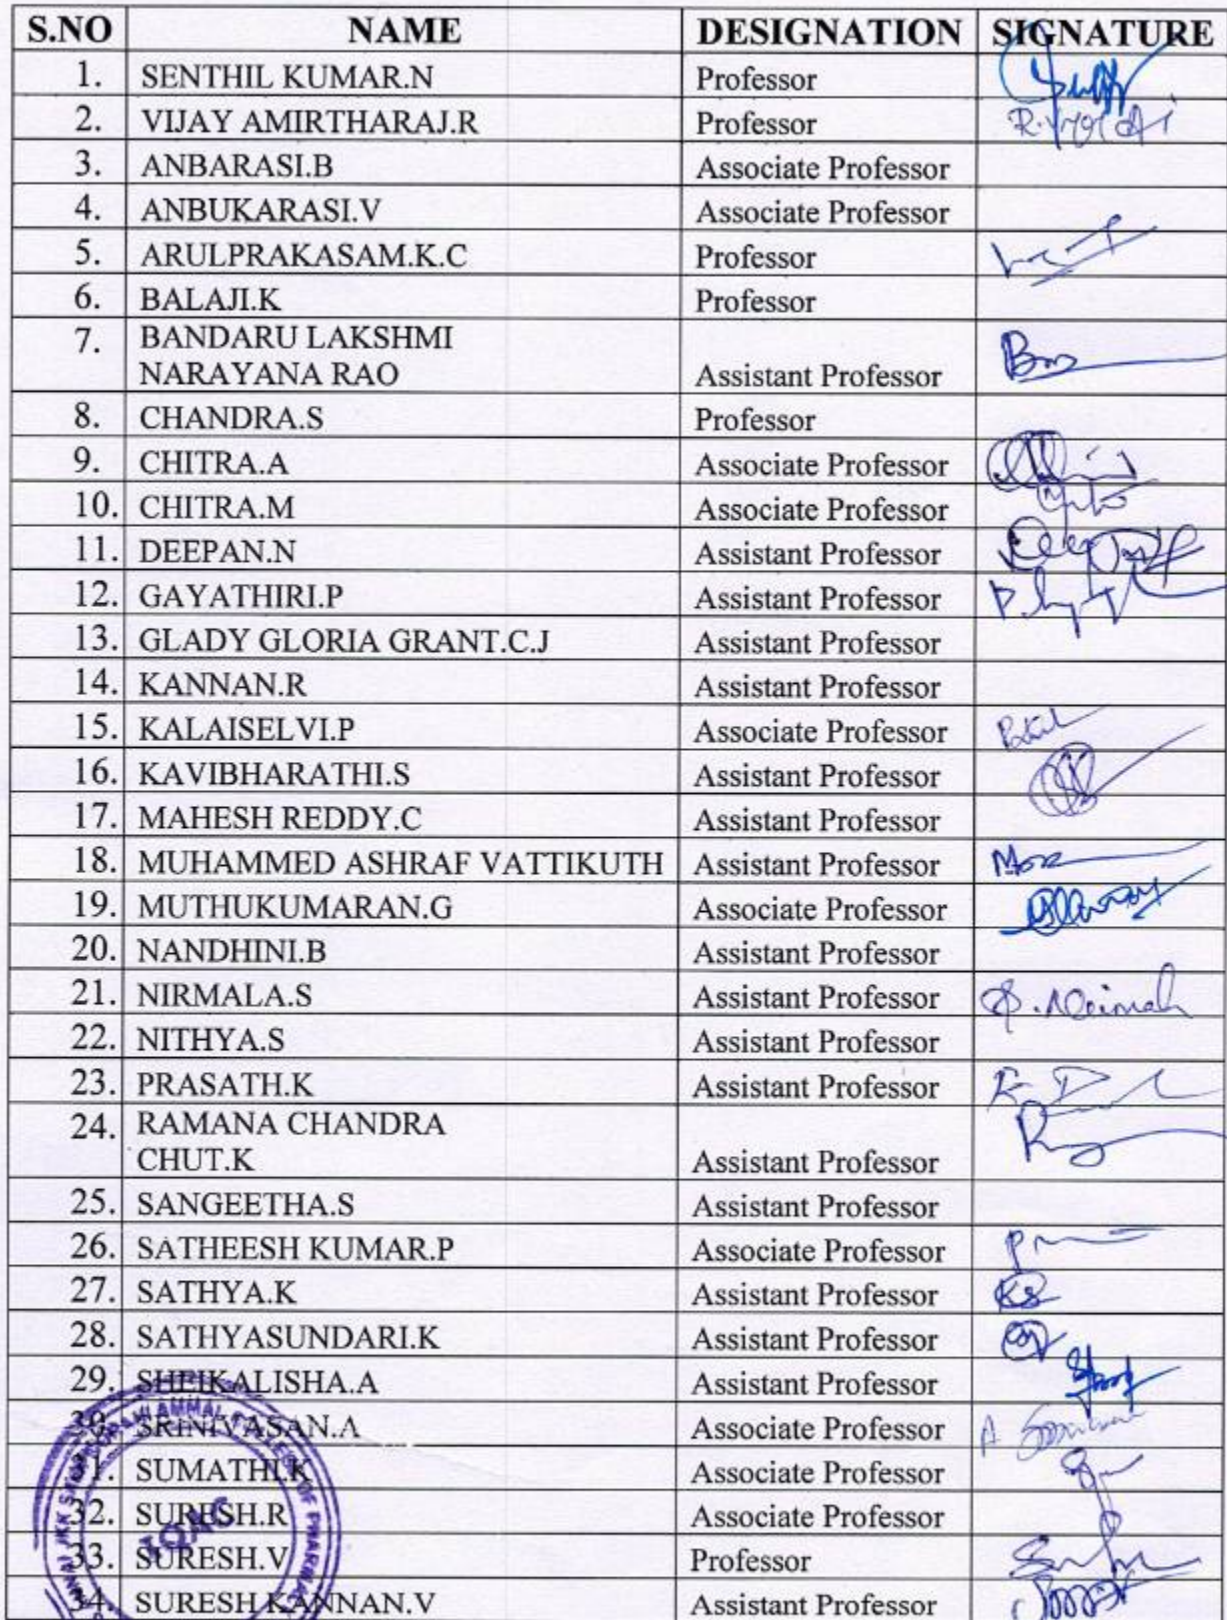 S.NO NAME DESIGNATION SIGNATURE
1. SENTHIL KUMAR.N Professor
2. VIJAY AMIRTHARAJ.R Professor
3. ANBARASI.B Associate Professor
4. ANBUKARASI.V Associate Professor
5. ARULPRAKASAM.K.C Professor
6. BALAJI.K Professor
7. BANDARU LAKSHMI
NARAYANA RAO Assistant Professor
8. CHANDRA.S Professor
9. CHITRA.A Associate Professor
10. CHITRA.M Associate Professor
11. DEEPAN.N Assistant Professor
12. GAYATHIRI.P Assistant Professor
13. GLADY GLORIA GRANT.C.J Assistant Professor
14. KANNAN.R Assistant Professor
15. KALAISELVI.P Associate Professor
16. KAVIBHARATHI.S Assistant Professor
17. MAHESH REDDY.C Assistant Professor
18. MUHAMMED ASHRAF VATTIKUTH Assistant Professor
19. MUTHUKUMARAN.G Associate Professor
20. NANDHINI.B Assistant Professor
21. NIRMALA.S Assistant Professor
22. NITHYA.S Assistant Professor
23. PRASATH.K Assistant Professor
24. RAMANA CHANDRA
CHUT.K Assistant Professor
25. SANGEETHA.S Assistant Professor
26. SATHEESH KUMAR.P Associate Professor
27. SATHYA.K Assistant Professor
28. SATHYASUNDARI.K Assistant Professor
29. SHEIKALISHA.A Assistant Professor
30. SRINIVASAN.A Associate Professor
31. SUMATHI.K Associate Professor
32. SURESH.R Associate Professor
33. SURESH.V Professor
34. SURESH KANNAN.V Assistant Professor
IQAC